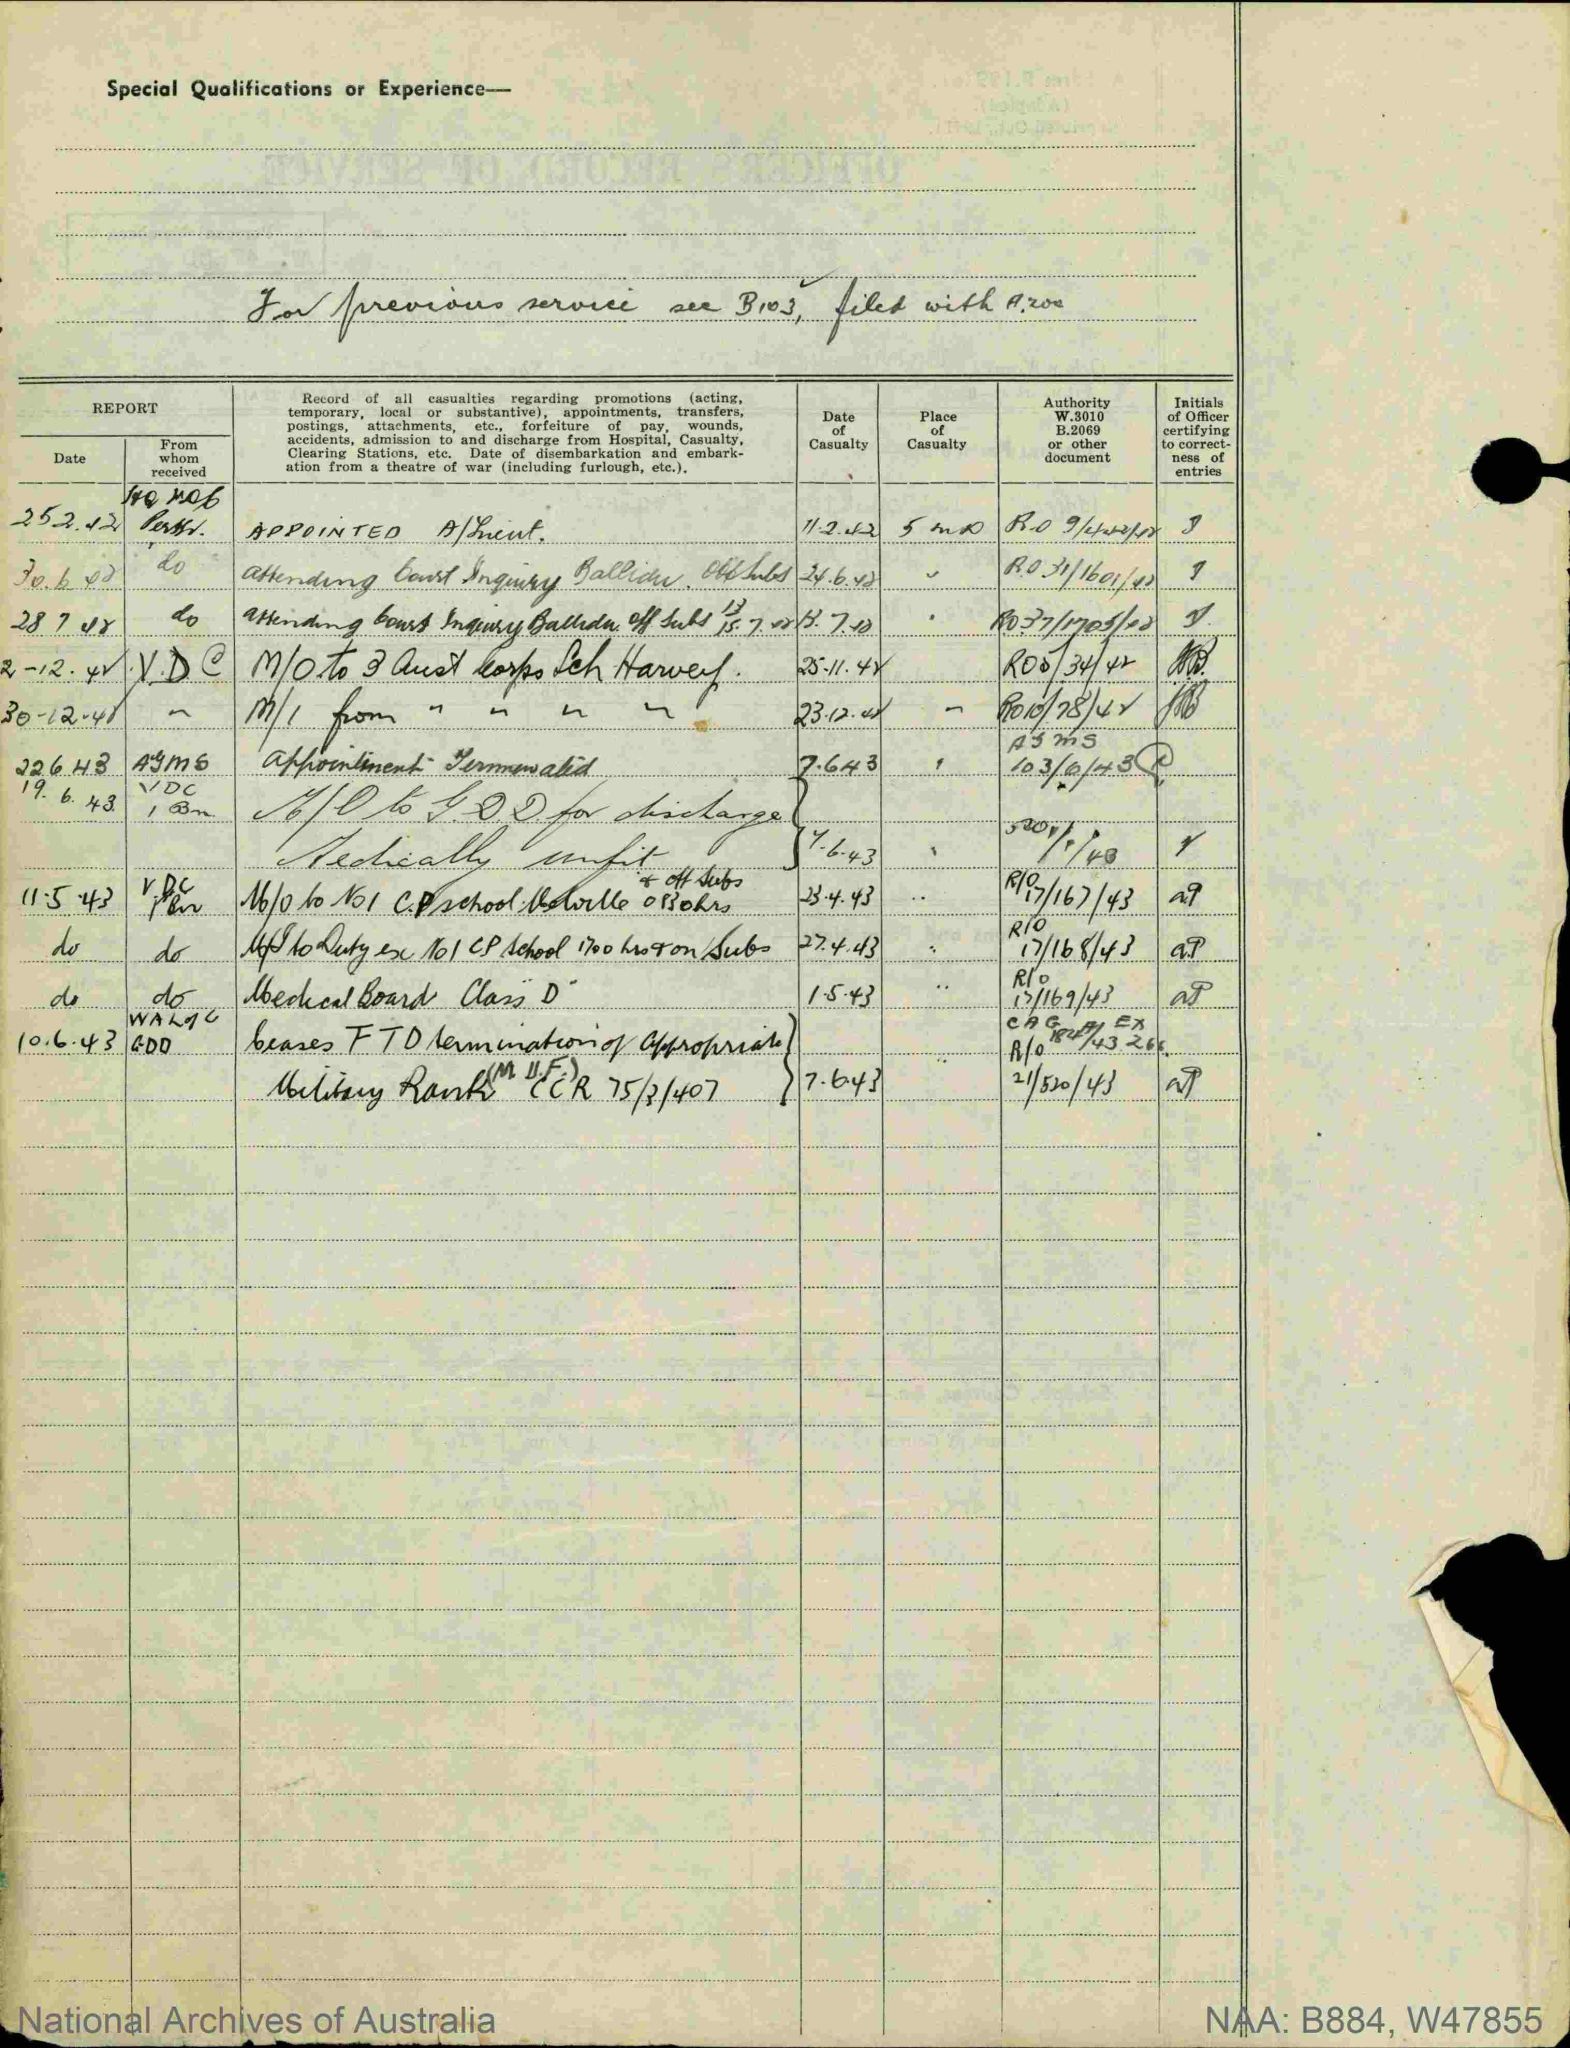 Special Qualifications or Experience—
For previous service see B103, filed with A.200
REPORT
Date
From whom received
Record of all casualties regarding promotions (acting,
temporary, local or substantive), appointments, transfers,
postings, attachments, etc., forfeiture of pay, wounds,
accidents, admission to and discharge from Hospital, Casualty,
Clearing Stations, etc. Date of disembarkation and embark-
ation from a theatre of war (including furlough, etc.).
Date of Casualty
Place of Casualty
Authority W.3010 B.2069 or other document
Initials of Officer certifying to correct- ness of entries
25.2.42 Perth. APPOINTED A/Lieut. 11.2.42 5 M D R.O 9/
30.6.42 do attending Court Inquiry Ballidu. Off Subs 24.6.42 " R.O 31/1601/42
28 7 42 do attending Court Inquiry Ballidu off Subs 13 15.7.42 13.7.42 " RO 37/1705/42
2-12.42 V.D C M/O to 3 Aust Corps Sch Harvey. 25-11.42 RO5/34/42
30-12-42 " M/I from " " " " 23.12.42 " RO10/78/42
22 6 43 AGMS Appointment Terminated 7.6.43 " AGMS 103/6/43
19.6.43 VDC 1 Bn M/O to G.D.D for discharge
Medically unfit 7.6.43 " /43
11.5.43 VDC 1 Bn M/O to No 1 C.P school Melville 0830hrs & off Subs 23.4.43 " R/O 17/167/43 aP
do do M/I to Duty ex No 1 CP School 1700 hrs & on Subs 27.4.43 " R/O 17/168/43 aP
do do Medical Board Class "D" 1.5.43 " R/O 17/169/43 aP
10.6.43 WA L of C GDD Ceases FTD termination of appropriate " CAG EX R/O
Military Rank (M.U.F.) CCR 75/3/407 7.6.43 21/520/43 aP
National Archives of Australia
NAA: B884, W47855